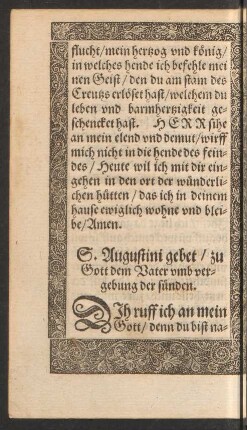 flucht/mein hertzog vnd könig/
in welches hende ich befehle mei
nen Geist/den du am stam des
Creutzs erlöset hast/welchem du
leben vnd barmhertzigkeit ge-
schencket hast. HERR sihe
an mein elend vnd demut/wirff
mich nicht in die hende des fein-
des/Heute wil ich mit dir ein-
gehen in den ort der wünderli-
chen hütten/das ich in deinem
hause ewiglich wohne vnd blei-
be/Amen.
S. Augustini gebet/zu
Gott dem Vater vmb ver-
gebung der sünden.
DIh ruff ich an mein
Gott/denn du bist na-